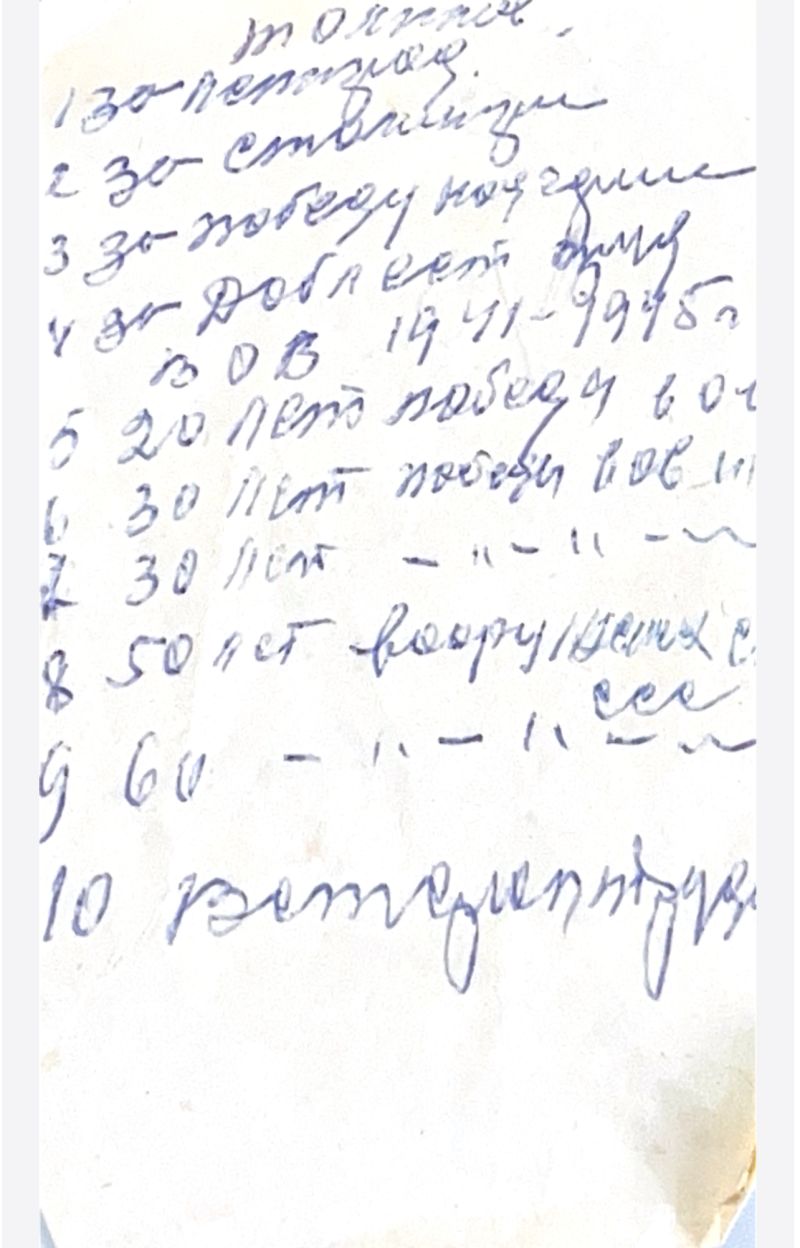 1 За Ленинград
2 За Сталингр
3 За победу над гер
4 За Доблест труд
ВОВ 1941-9945 г
5 20 лет победы в о
6 30 лет победы вов
7 30 лет - " - " -
8 50 лет вооруженых с
ссс
9 60 - " - " -
10 Ветеран труда